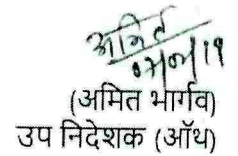 अमित
07/01/19
(अमित भार्गव)
उप निदेशक (ऑथ)